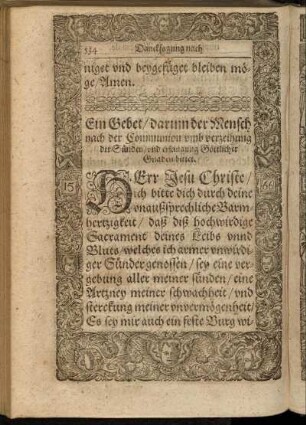 334 Dancksagung nach
niget vnd beygefüget bleiben mö-
ge/ Amen.
Ein Gebet/ darum der Mensch
nach der Communion vmb verzeihung
der Sünden/ vnd erlangung Göttlicher
Gnaden bittet.
HErr Jesu Christe/
ich bitte dich durch deine
vnaußsprechliche Barm-
hertzigkeit/ daß diß hochwirdige
Sacrament deines Leibs vnnd
Bluts/ welches ich armer vnwirdi-
ger Sünder genossen/ sey eine ver-
gebung aller meiner sünden/ eine
Artzney meiner schwachheit/ vnd
sterckung meiner vnvermögenheit/
Es sey mir auch ein feste Burg wi-
15